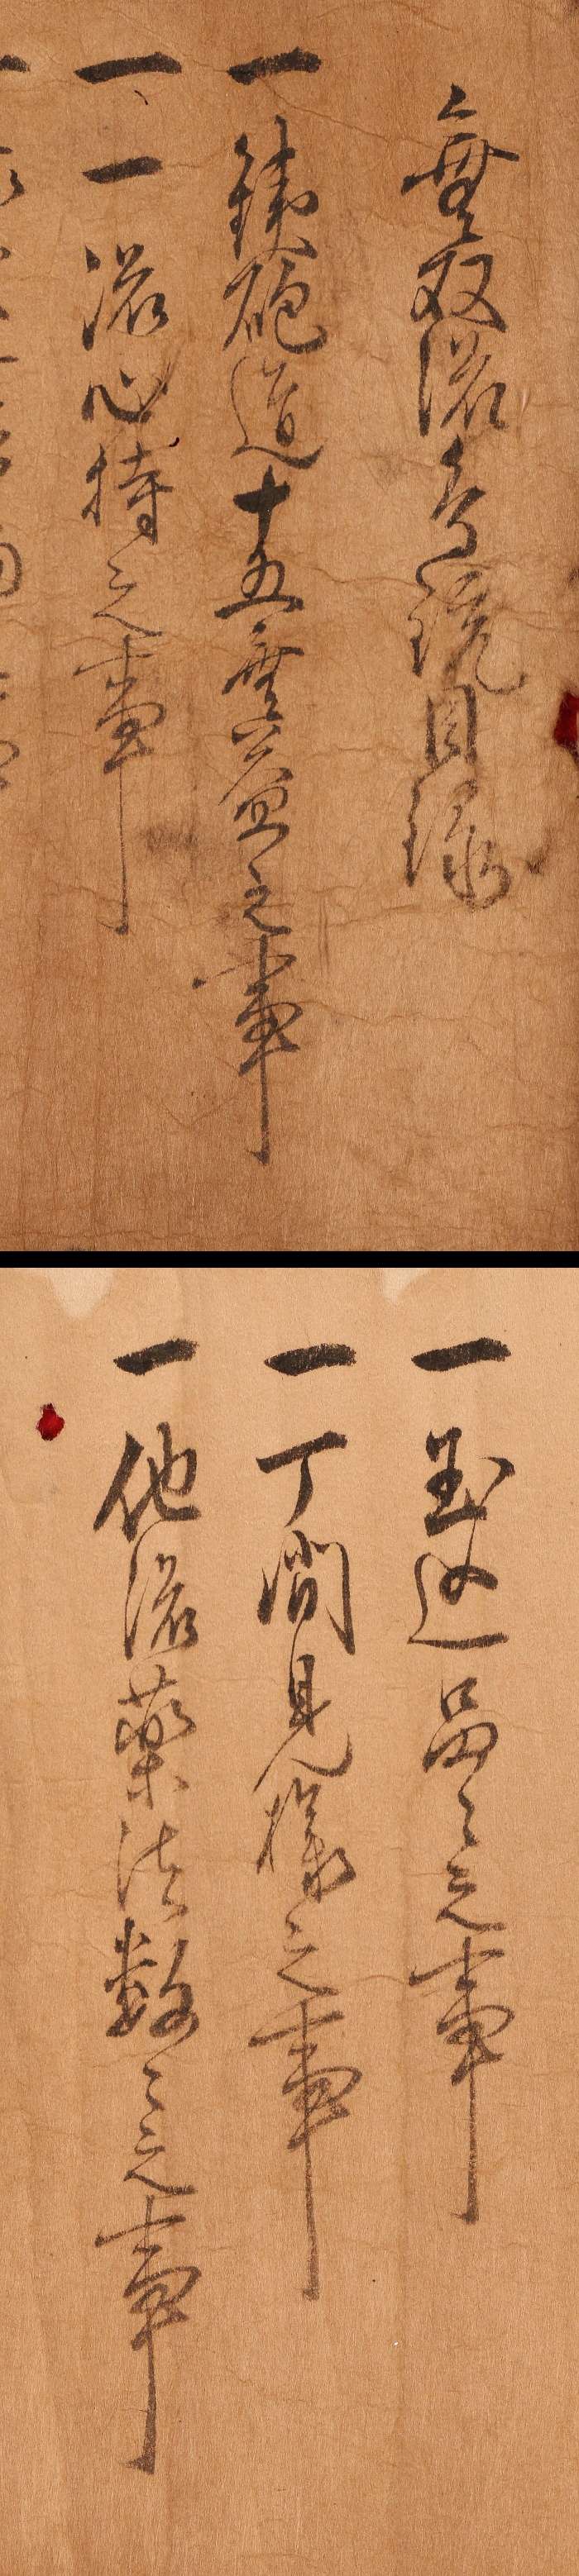 無双流鳥銃目録
一 銕砲道十五無益之事
一 一流心持之事
一 玉込品々之事
一 丁間見様之事
一 他流薬法数々之事